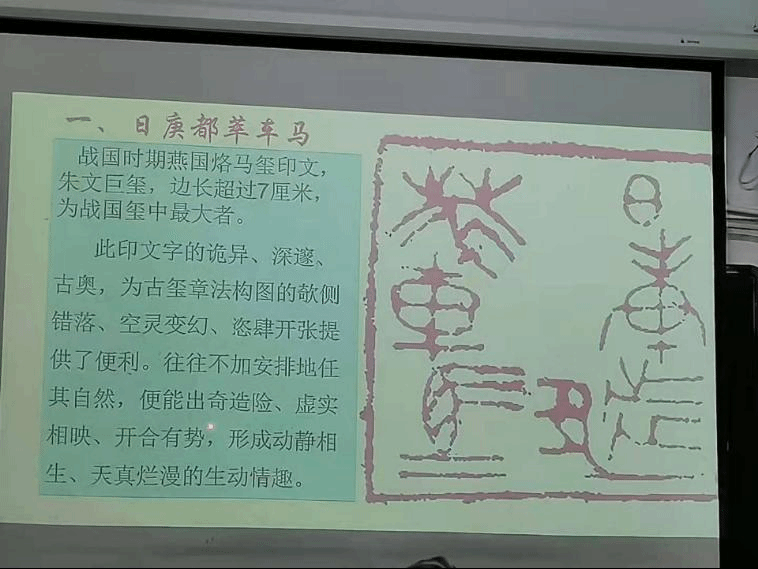 一、日庚都萃车马
战国时期燕国烙马玺印文，
朱文巨玺，边长超过7厘米，
为战国玺中最大者。
此印文字的诡异、深邃、
古奥，为古玺章法构图的欹侧
错落、空灵变幻、恣肆开张提
供了便利。往往不加安排地任
其自然，便能出奇造险、虚实
相映、开合有势，形成动静相
生、天真烂漫的生动情趣。